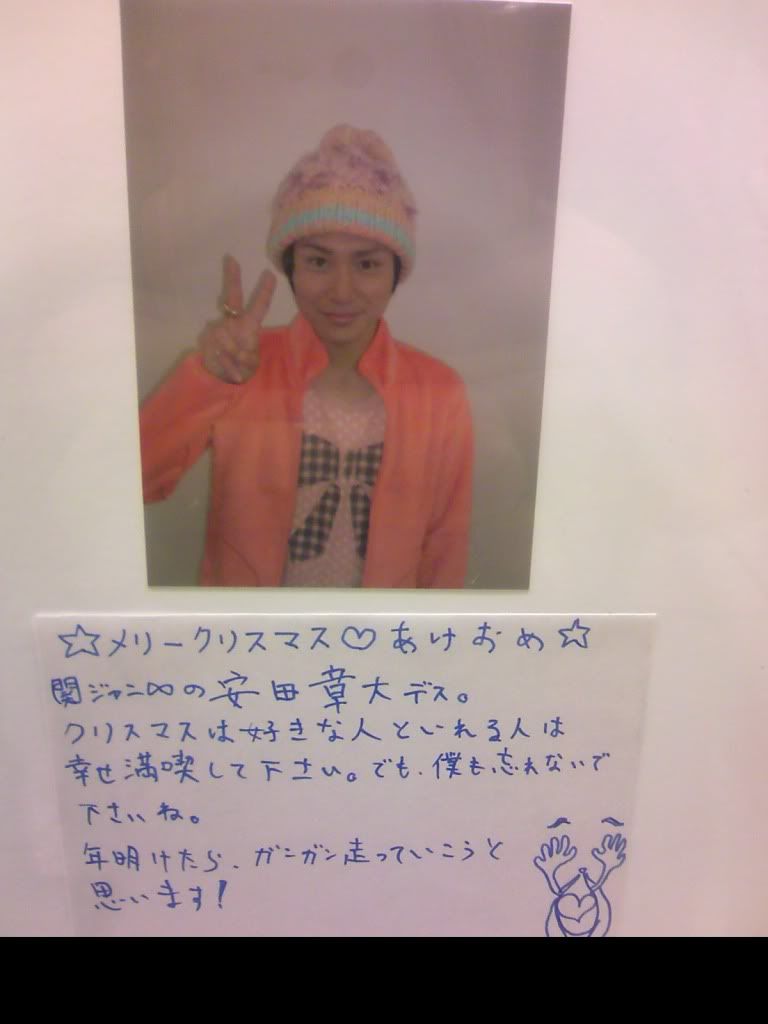 ☆メリークリスマス♡あけおめ☆
関ジャニ∞の安田章大デス。
クリスマスは好きな人といれる人は
幸せ満喫して下さい。でも、僕も忘れないで
下さいね。
年明けたら、ガンガン走っていこうと
思います!